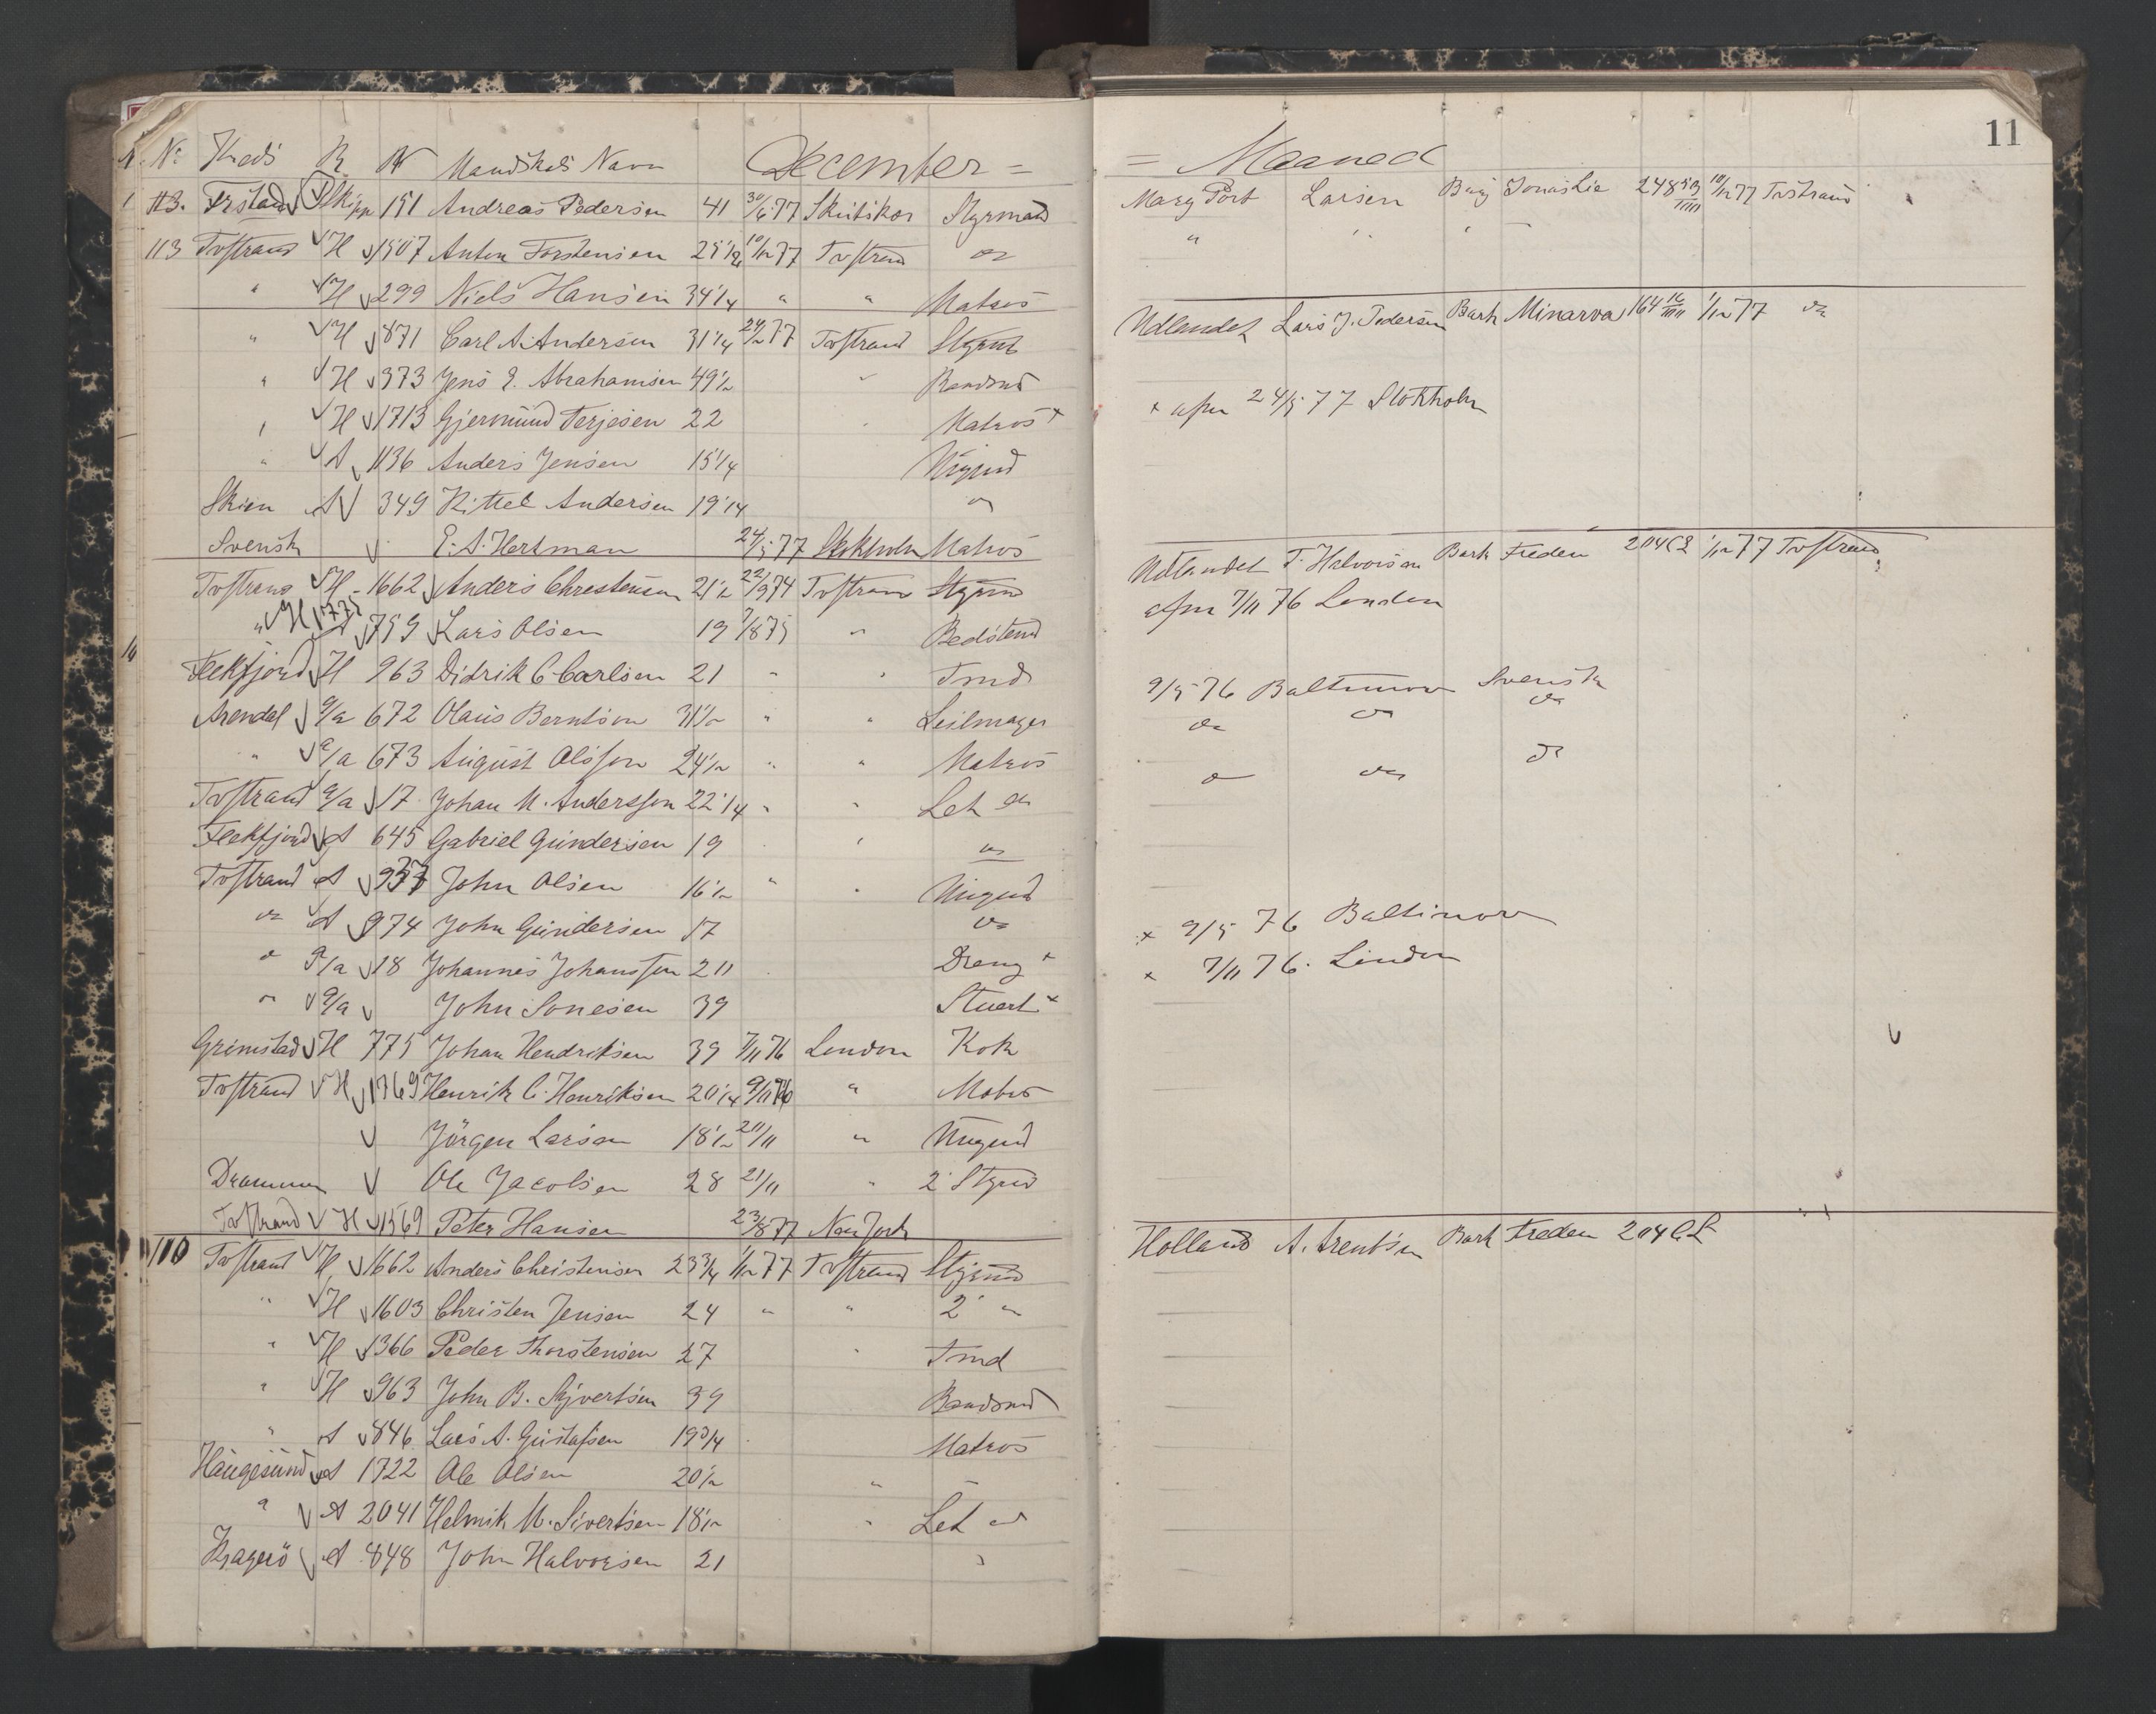 No Kreds R. N Mandskab Navn December =
113. Frstad 151 Andreas Pedersen 41 30/6 77 Skutskar Styrmand
113 Tvstrand H 1507 Anton Torstensen 25 1/2 10/12 77 Tvstrand do
" H 299 Niels Hansen 34 1/4 " " Matros
" H 871 Carl A. Andersen 31 1/4 24/2 77 Tvstrand Styrmd
" H 373 Jens E. Abrahamsen 49 1/2 " Baadsmd
" H 1713 Gjermund Terjesen 22 " Matros x
" A 1136 Anders Jensen 15 1/4 Üngmd
Skien A 349 Kittel Andersen 19 1/4 "
Svensk E. A. Hertman 24/5 77 Stokholm Matros
Tvstrand H 1662 Anders Christensen 21 1/2 22/9 74 Tvstrand Styrmd
" H 1775 A 759 Lars Olsen 19 7/8 75 " Bedstemd
Flekfjord H 963 Didrik C. Carlsen 21 " " Tmd
Arendal a/a 672 Olaus Berntsen 31 1/2 " " Seilmager
" a/a 673 August Olsson 24 1/2 " " Matros
Tvstrand a/a 17 Johan M. Andersson 22 1/4 " " Let do
Flekfjord A 645 Gabriel Gundersen 19 " do
Tvstrand A John Olsen 16 1/2 " " Üngmd
do A 974 John Gundersen 17 do
do a/a 18 Johannes Johansson 211 Dreng x
do a/a John Sonesen 39 Stuert x
Grimstad H 775 Johan Hendriksen 39 7/11 76 London Kok
Tvstrand H 1769 Henrik C. Henriksen 20 1/4 9/11 76 " Matros
Jörgen Larsen 18 1/2 20/11 " Üngmd
Drammen Ole Jacobsen 28 21/11 " 2 Styrmd
Tvstrand H 1569 Peter Hansen 23/8 77 New York
110 Tvstrand H 1662 Anders Christensen 23 3/4 1/12 77 Tvstrand Styrmd
" H 1603 Christen Jensen 24 " " 2 "
" H 1366 Peder Thorstensen 27 " Tmd
" H 963 John B. Syvertsen 39 Baadsmd
" A 846 Lars A. Gustafsen 19 3/4 Matros
Haugesund A 1722 Ole Olsen 20 1/2 "
" A 2041 Helmik M. Sivertsen 18 1/2 " Let do
Kragerö A 848 John Halvorsen 21 "
11
= Maaned
Mary Port Larsen Brig Jonas Lie 248 10/12 77 Tvstrand
" " " "
Udlandet Lars J. Pedersen Bark Minarva 164 1/12 77 do
x afm 24/5 77 Stokholm
Udlandet T. Halvorsen Bark Freden 204 CL 1/12 77 Tvstrand
afm 7/11 76 London
9/5 76 Baltimore Svensk
do do do
do do do
x 9/5 76 Baltimore
x 7/11 76. London
Holland A. Arentsen Bark Freden 204 CL